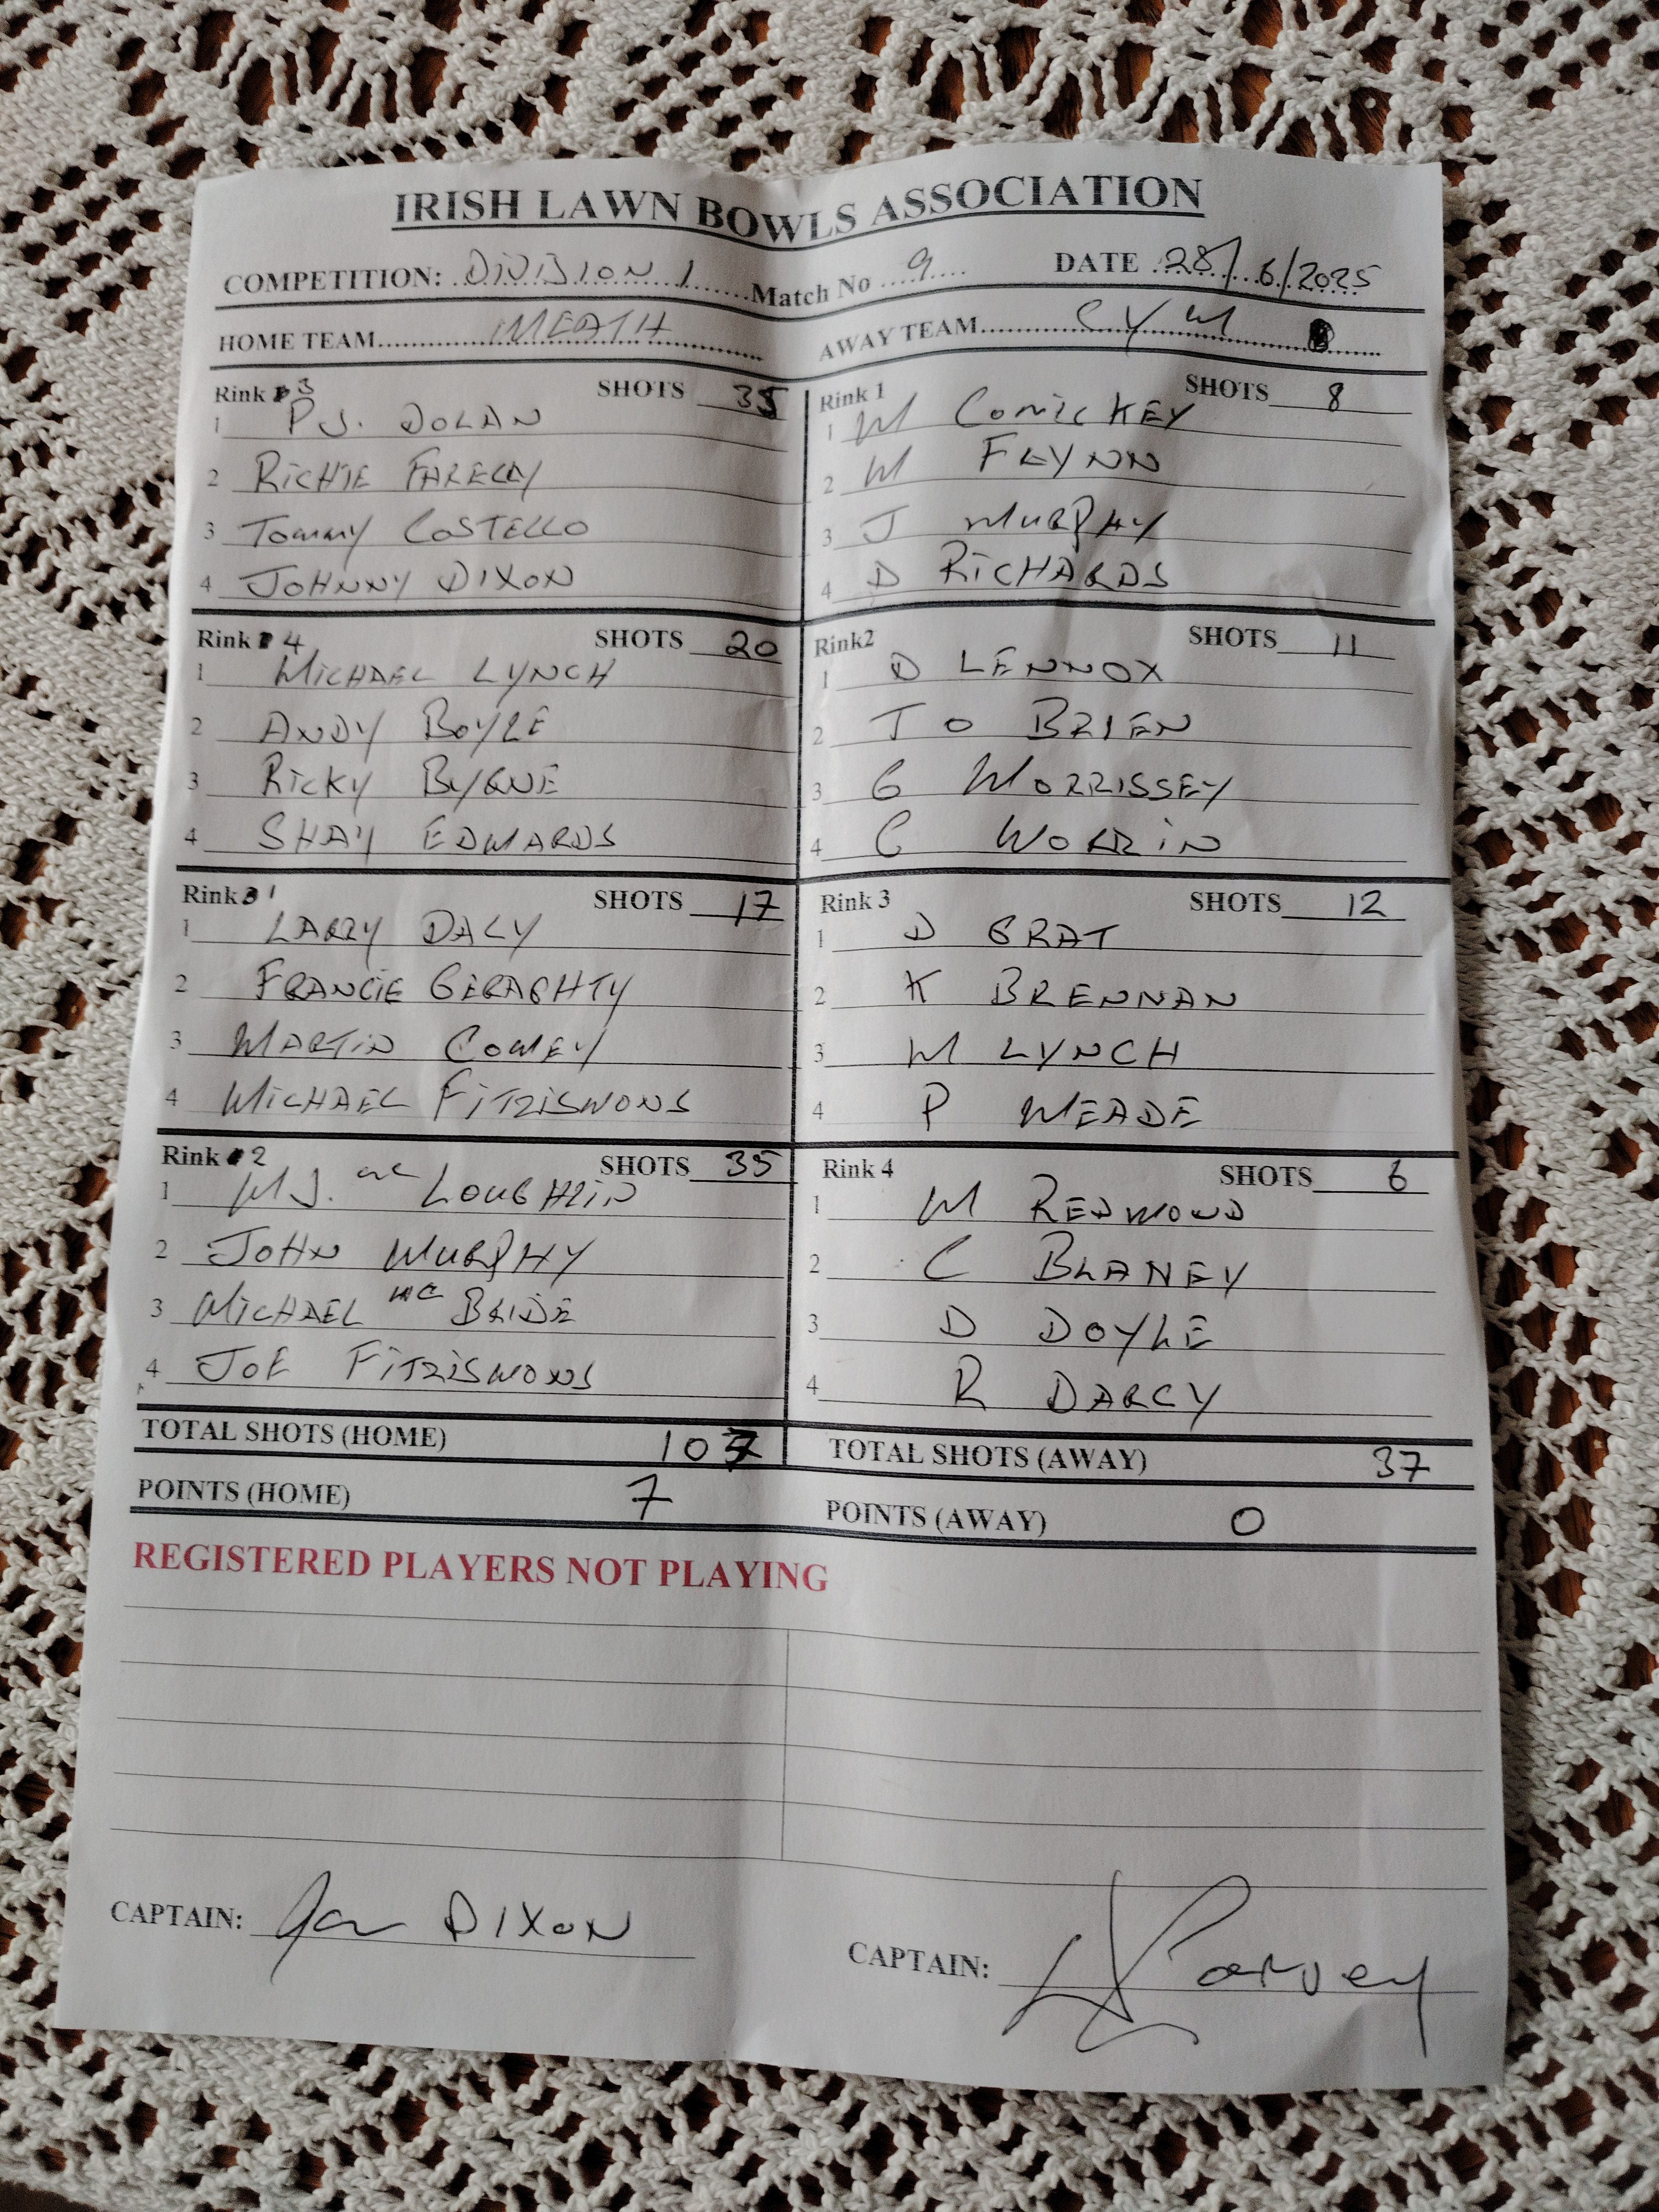 IRISH LAWN BOWLS ASSOCIATION
COMPETITION: DIVISION 1 Match No 9 DATE 28/6/2025
HOME TEAM MEATH AWAY TEAM CYM
Rink 3 SHOTS 35
1 P J. DOLAN
2 RICHIE FARELLY
3 TOMMY COSTELLO
4 JOHNNY DIXON
Rink 1 SHOTS 8
1 M COMICKEY
2 M FLYNN
3 J MURPHY
4 D RICHARDS
Rink 4 SHOTS 20
1 MICHAEL LYNCH
2 ANDY BOYLE
3 RICKY BYRNE
4 SHAY EDWARDS
Rink2 SHOTS 11
1 D LENNOX
2 J O BRIEN
3 G MORRISSEY
4 C WORRIN
Rink 1 SHOTS 17
1 LARRY DALY
2 FRANCIE GERAGHTY
3 MARTIN COMEY
4 MICHAEL FITZISMONS
Rink 3 SHOTS 12
1 D GRAT
2 K BRENNAN
3 M LYNCH
4 P MEADE
Rink 2 SHOTS 35
1 M J. MC LOUGHLIN
2 JOHN MURPHY
3 MICHAEL MC BRIDE
4 JOE FITZISMONS
Rink 4 SHOTS 6
1 M REDMOND
2 C BLANEY
3 D DOYLE
4 R DARCY
TOTAL SHOTS (HOME) 107 TOTAL SHOTS (AWAY) 37
POINTS (HOME) 7 POINTS (AWAY) 0
REGISTERED PLAYERS NOT PLAYING
CAPTAIN: DIXON
CAPTAIN: